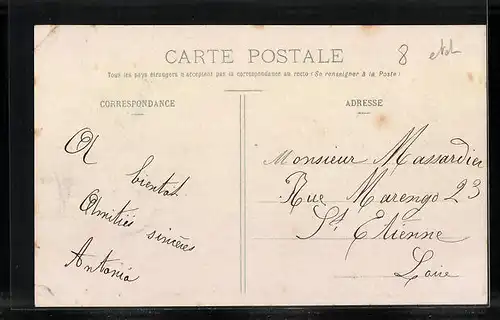 8
CARTE POSTALE
Tous les pays étrangers n'acceptent pas la correspondance au recto (Se renseigner à la Poste)
CORRESPONDANCE
ADRESSE
A
bientot
Amitiés sincères
Antonia
Monsieur Massardier
Rue Marengo 23
St Etienne
Loire